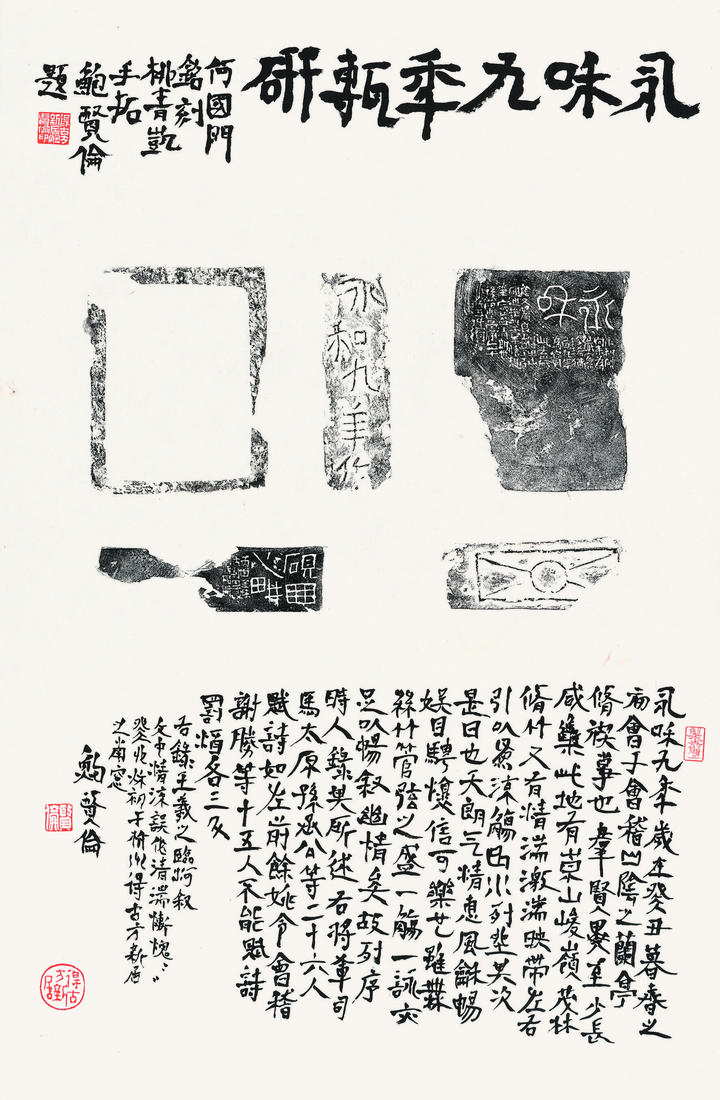 永咊九秊甎研
何國門
銘刻
桃青凱
手拓
鮑賢倫
題
永咊
永和九年作
硯田
心畊
永咊九年歲在癸丑暮春之
初會于會稽山陰之蘭亭
脩禊事也羣賢畢至少長
咸集此地有崇山峻嶺茂林
脩竹又有清湍激湍映帶左右
引以為流觴曲水列坐其次
是日也天朗气清惠風龢暢
娛目騁懷信可樂也雖無
絲竹管弦之盛一觴一詠亦
足以暢敘幽情矣故列序
時人錄其所述右將軍司
馬太原孫丞公等二十六人
賦詩如左前餘姚令會稽
謝勝等十五人不能賦詩
罰酒各三斗
右錄王羲之臨河敘
文中清流誤作清湍慚愧〻
癸卯秋初于杭州得古方新居
之南窗
鮑賢倫